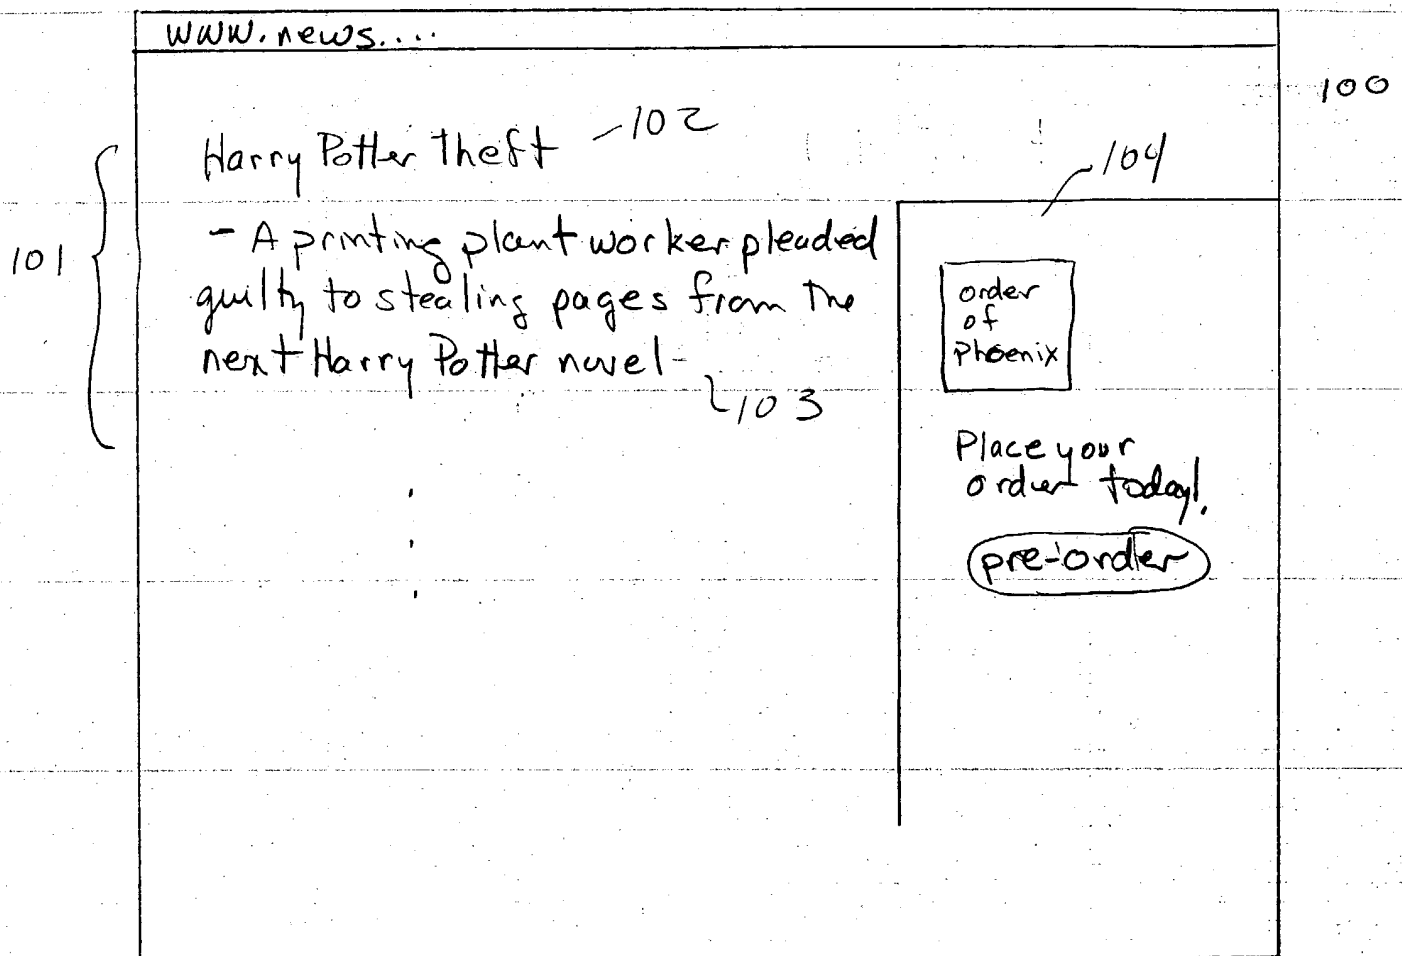 www.news....
100
Harry Potter Theft 102
104
101
- A printing plant worker pleaded
guilty to stealing pages from The
next Harry Potter novel-
103
order
of
Phoenix
Place your
order today!
pre-order